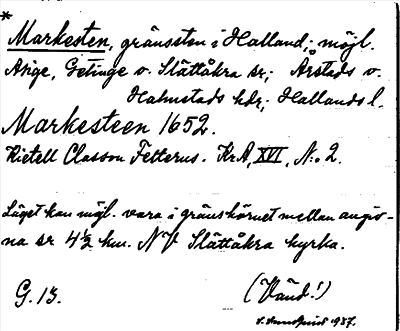 * Markesten, gränssten i Halland; möjl.
Arige, Getinge o. Slättåkra sr; Årstads o.
Halmstads hdr; Hallands l.
Markesteen 1652.
Kietell Classon Felterus. KrA, XVI, N:o 2.
Läget kan möjl. vara i gränshörnet mellan angiv-
na sr 4½ km. NV Slättåkra kyrka.
G. 13.
(Vänd!)
1937.